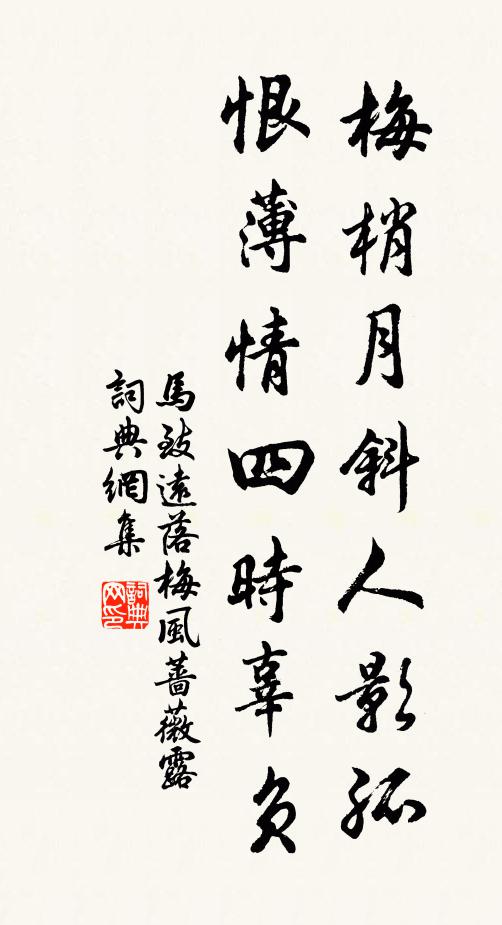 梅梢月斜人影孤
恨薄情四時辜負
馬致遠落梅風薔薇露
詞典網集
詞典网印